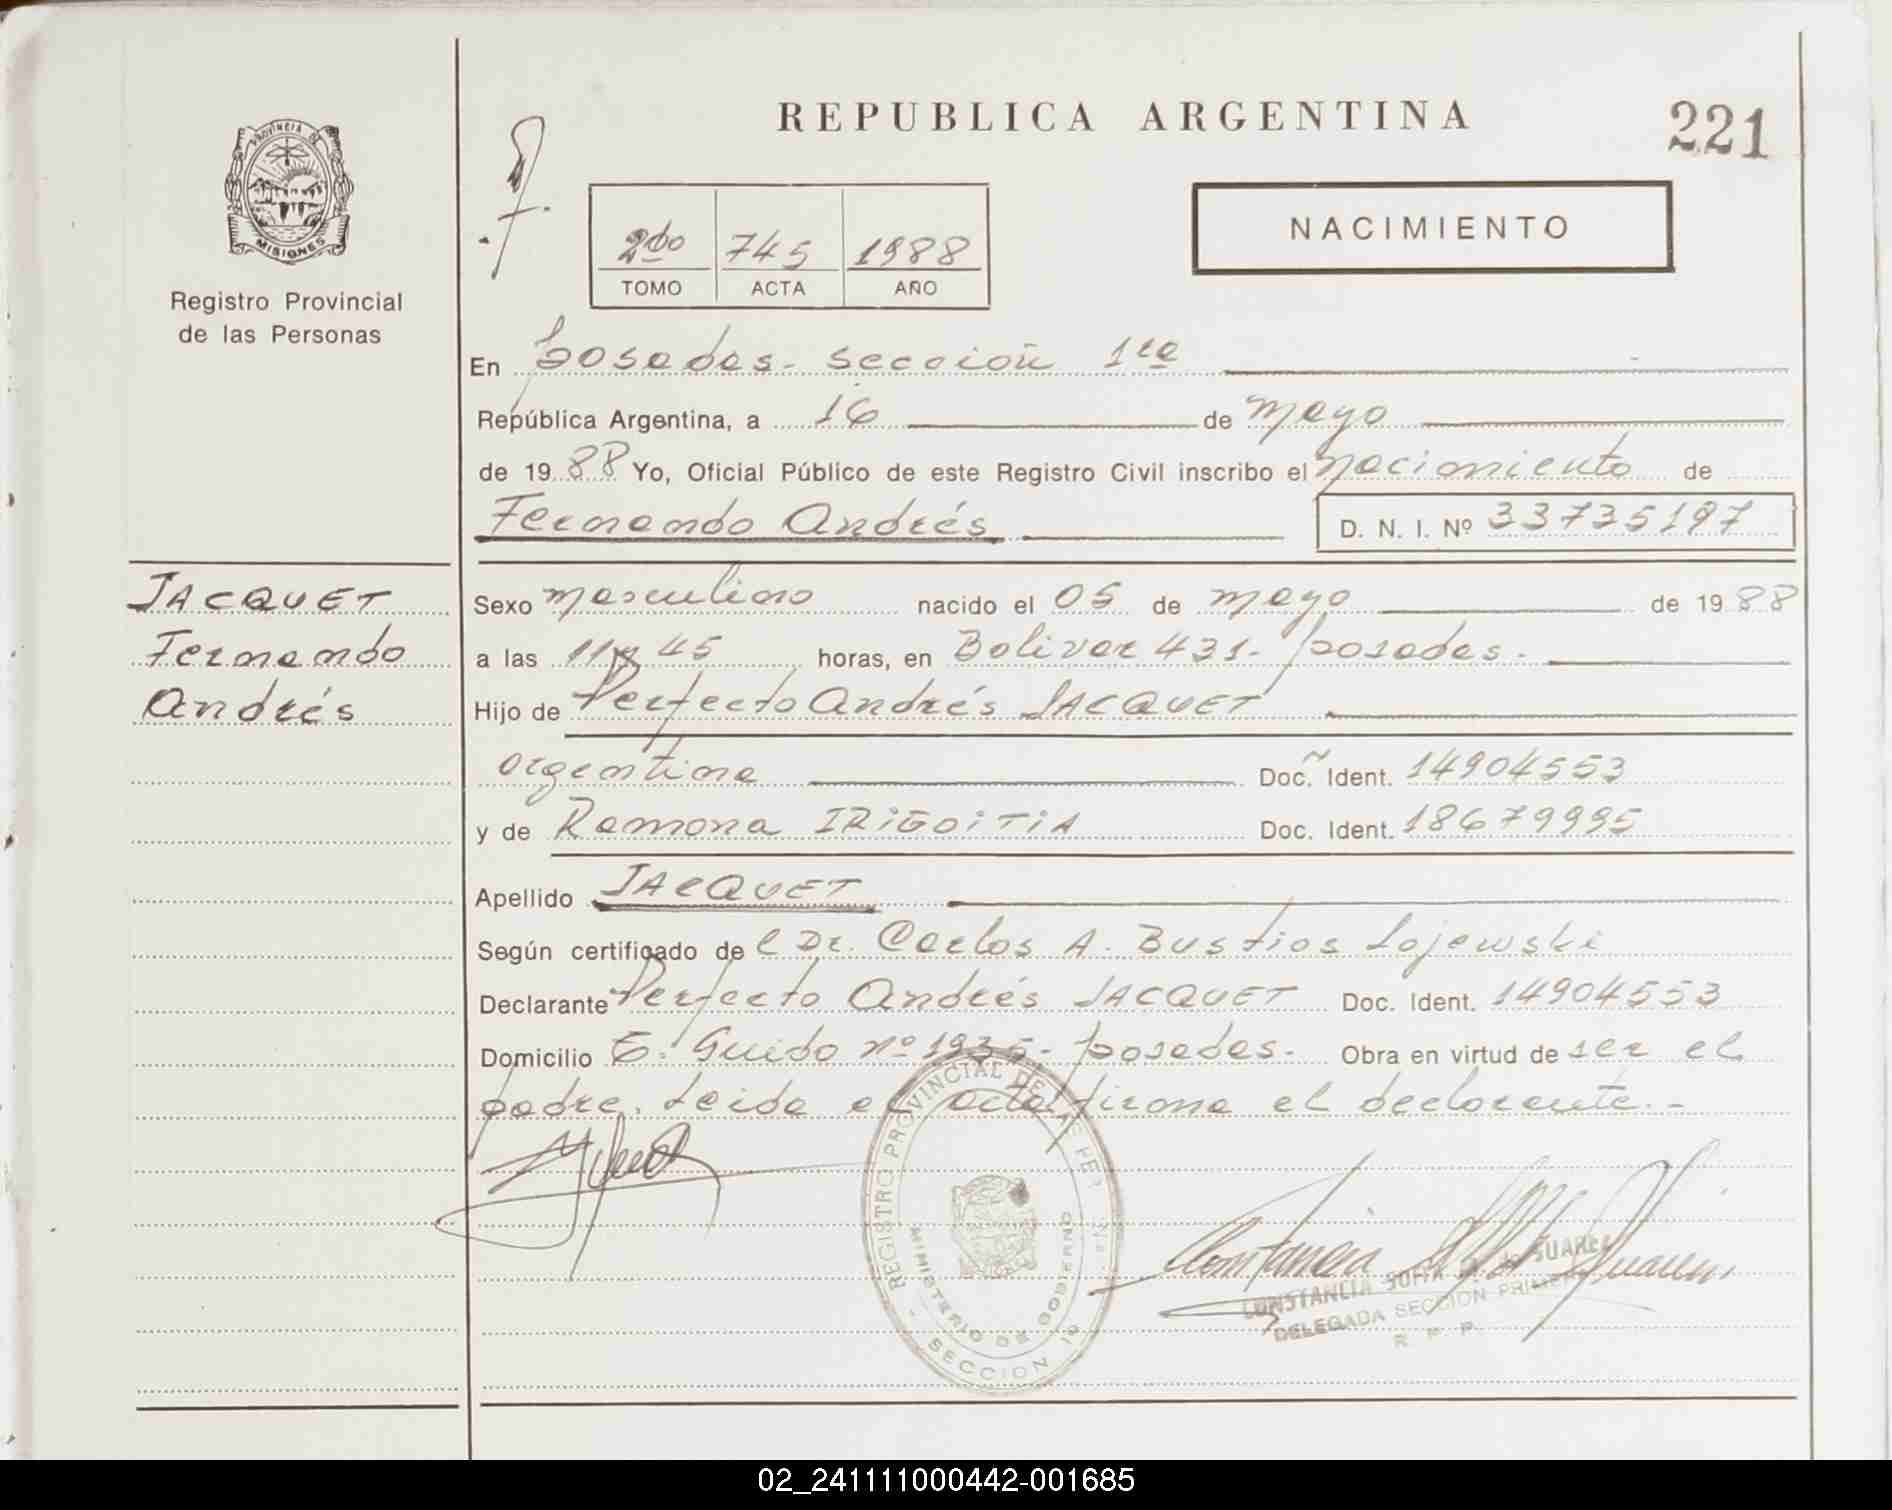 REPUBLICA ARGENTINA
221
PROVINCIA DE
MISIONES
Registro Provincial
de las Personas
NACIMIENTO
2do 745 1988
TOMO ACTA AÑO
En posadas - sección 1ra
República Argentina, a 16 de mayo
de 1988 Yo, Oficial Público de este Registro Civil inscribo el nacimiento de
Fernando Andrés D. N. I. Nº 33735197
JACQUET
Fernando
Andrés
Sexo masculino nacido el 05 de mayo de 1988
a las 11 y 45 horas, en Bolivar 431 - posadas.
Hijo de Perfecto Andrés JACQUET
argentina Doc. Ident. 14904553
y de Ramona IRIGOITIA Doc. Ident. 18679995
Apellido JACQUET
Según certificado de l Dr. Carlos A. Bustios Lojewski
Declarante Perfecto Andrés JACQUET Doc. Ident. 14904553
Domicilio T. Guido nº 1935 - posadas. Obra en virtud de ser el
padre. Leida el acta firma el declarante. -
REGISTRO PROVINCIAL DE
MINISTERIO DE GOBIERNO
SECCION 1a
CONSTANCIA SOFIA de SUAREZ
DELEGADA SECCION PRIMERA
R. P. P.
02_241111000442-001685